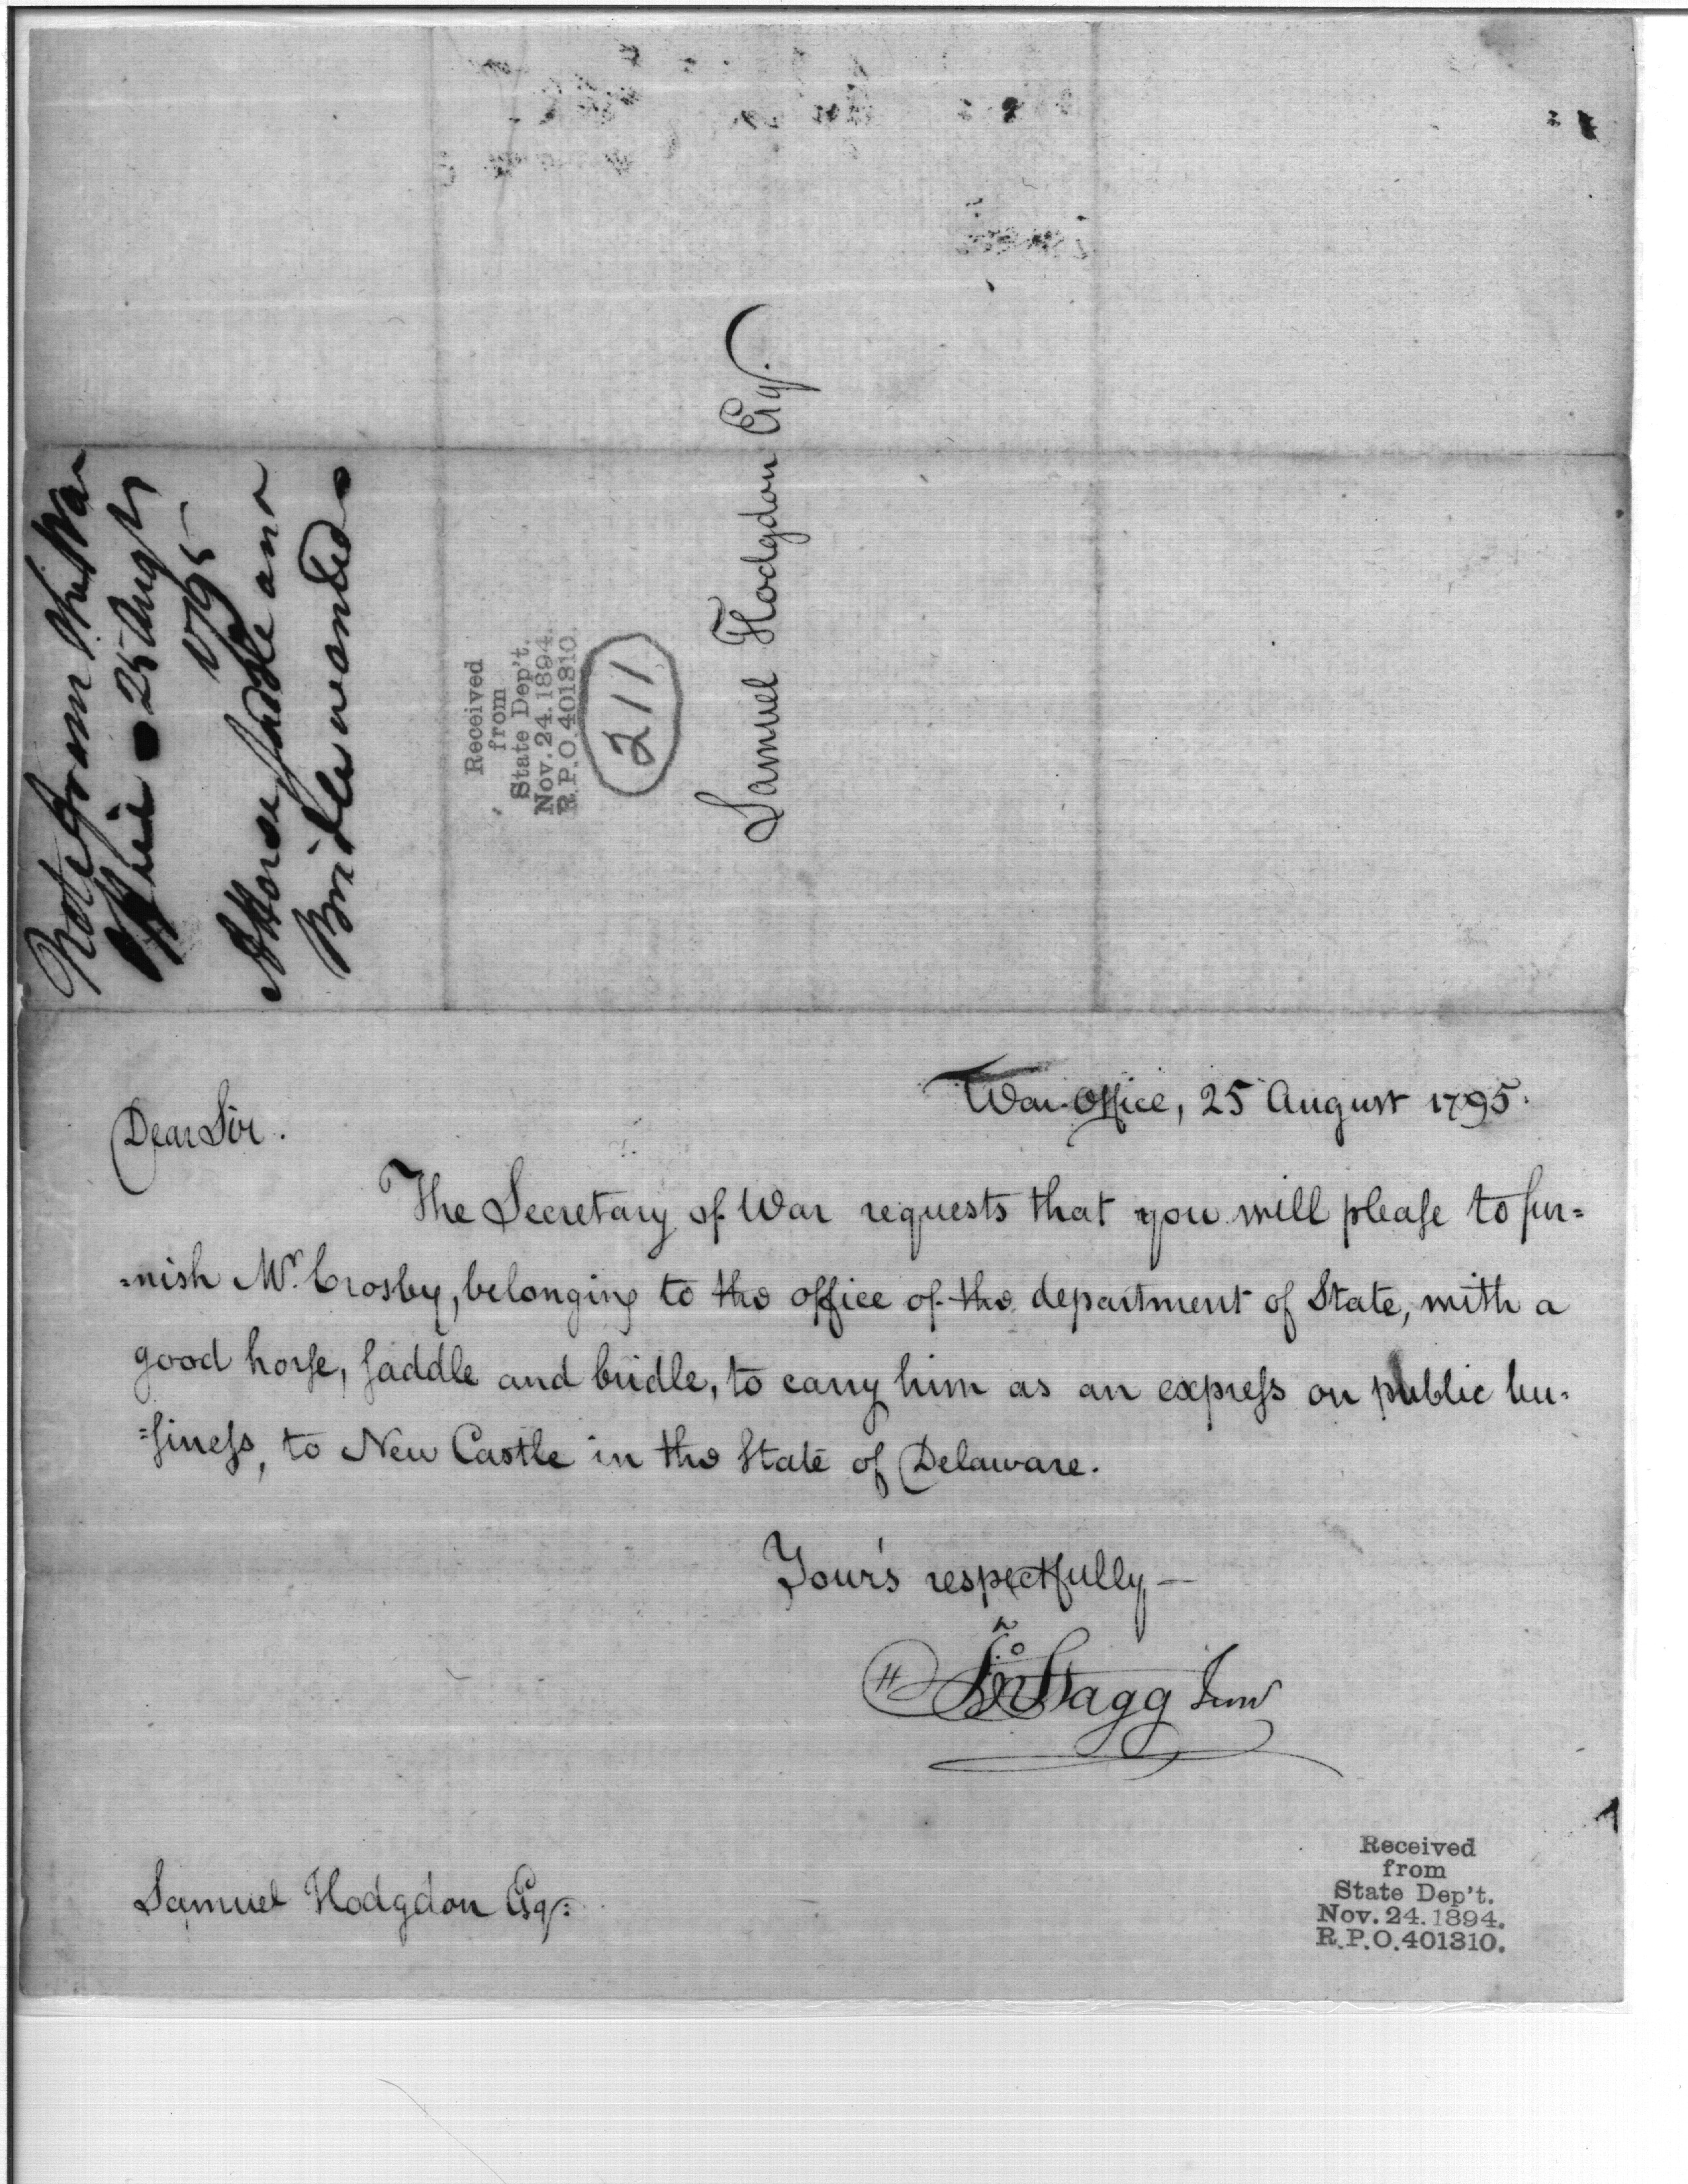 Note from the War
Office 25 August
1795
A Horse Saddle and
Bridle wanted
Received
from
State Dep't.
Nov. 24. 1894.
R.P.O. 401310.
211
Samuel Hodgdon Esq.
War Office, 25 August 1795.
Dear Sir.
The Secretary of War requests that you will please to fur=
=nish Mr. Crosby, belonging to the office of the department of State, with a
good horse, saddle and bridle, to carry him as an express on public bu=
=siness, to New Castle in the State of Delaware.
Your's respectfully —
Jno Stagg Junr
Samuel Hodgdon Esq:
Received
from
State Dep't.
Nov. 24. 1894.
R.P.O. 401310.